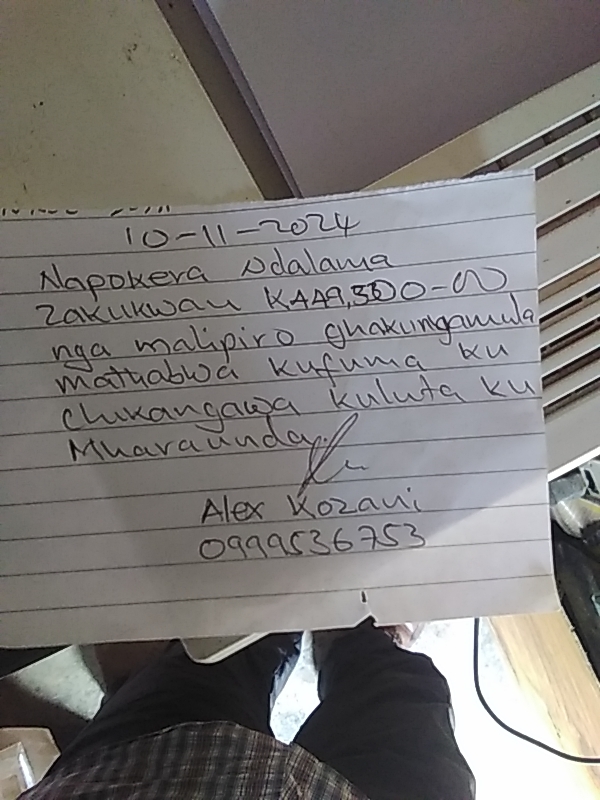 10-11-2024
Napokera Ndalama
zakukwan K449,500-00
nga malipiro ghakungamula
mathabwa kufuma ku
Chikangawa kuluta ku
Mharaunda.
Alex Kozani
0999536753